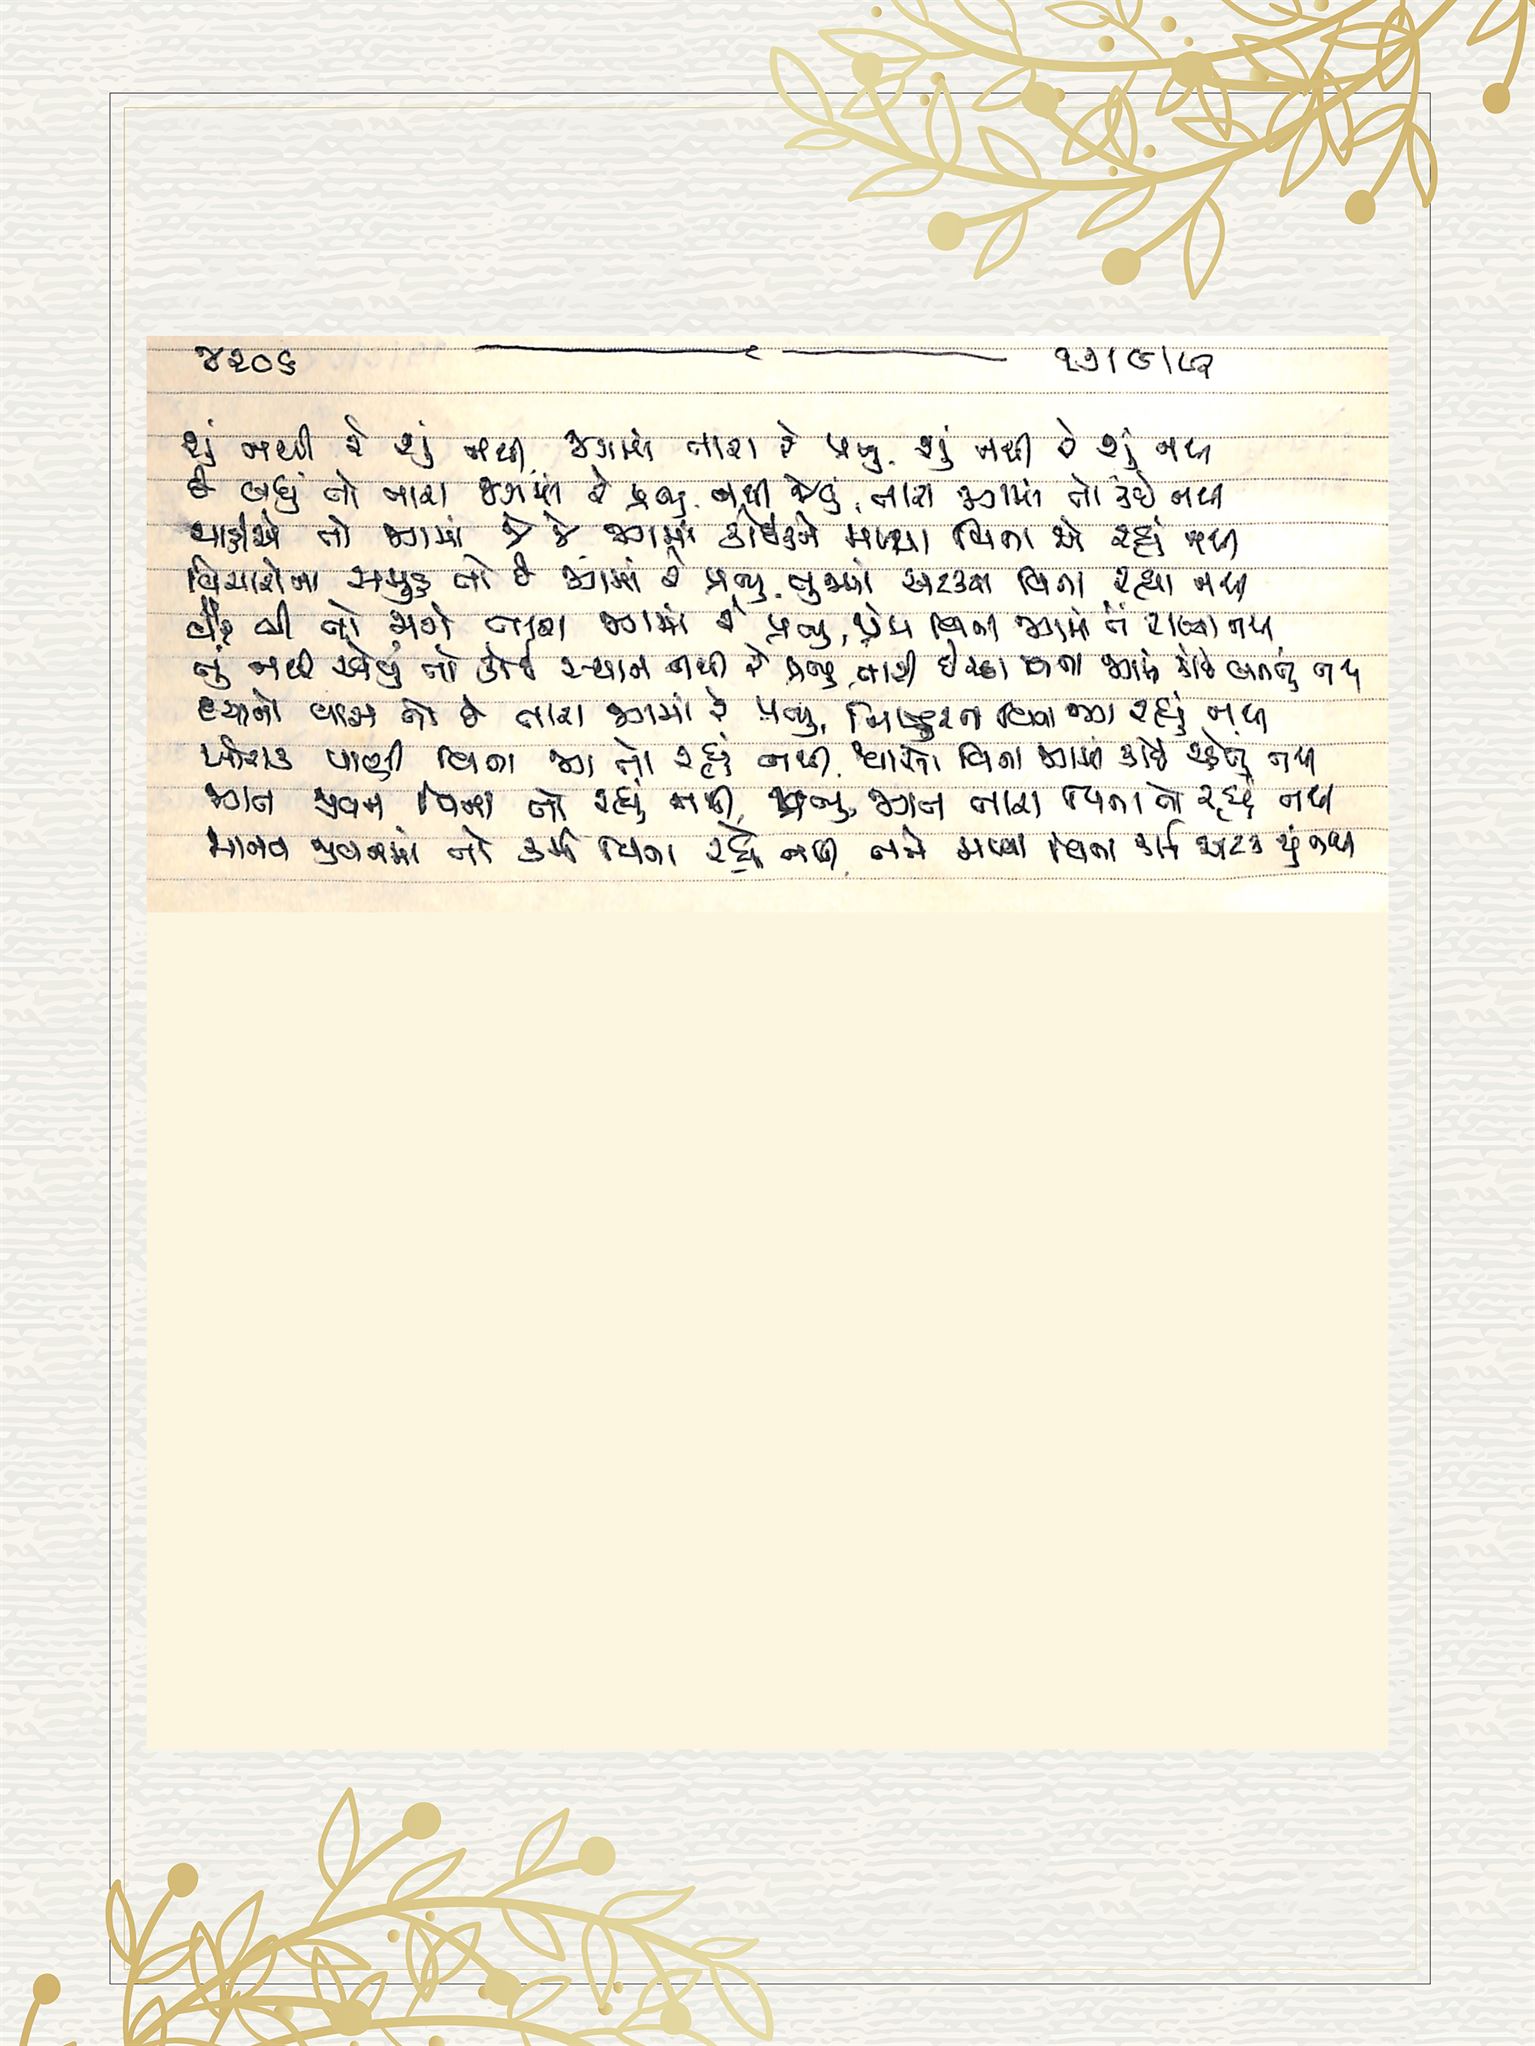 ૪૨૦૬ ૨૭/૯/૯૨
શું નથી રે શું નથી જગમાં તારા રે પ્રભુ. શું નથી રે શું નથી
છે બધું તો તારા જગમાં રે પ્રભુ. નથી એવું, તારા જગમાં તો કંઈ નથી
ચાહીએ તો જગમાં જે જે જગમાં કોઈકને મળ્યા વિના એ રહ્યું નથી
વિચારોના સમુદ્ર તો છે જગમાં રે પ્રભુ. તુજમાં અટક્યા વિના રહ્યા નથી
વૈર વી તો જાગે તારા જગમાં રે પ્રભુ, પ્રેમ વિના જગમાં તેં રાખ્યા નથી
તું નથી એવું તો કોઈ સ્થાન નથી રે પ્રભુ તારી ઈચ્છા વિના જગમાં કોઈ બનતું નથી
દયાનો વાસ તો છે તારા જગમાં રે પ્રભુ, વિના જગ રહ્યું નથી
ખોરાક પાણી વિના જગ તો રહ્યું નથી. વિના જગમાં કોઈ રહેતું નથી
જગત જીવન વિના તો રહ્યું નથી, પ્રભુ, જગત તારા વિના તો રહ્યું નથી
માનવ જીવનમાં તો કર્મ વિના રહ્યો નથી, તને મળ્યા વિના કર્મ અટક્યું નથી